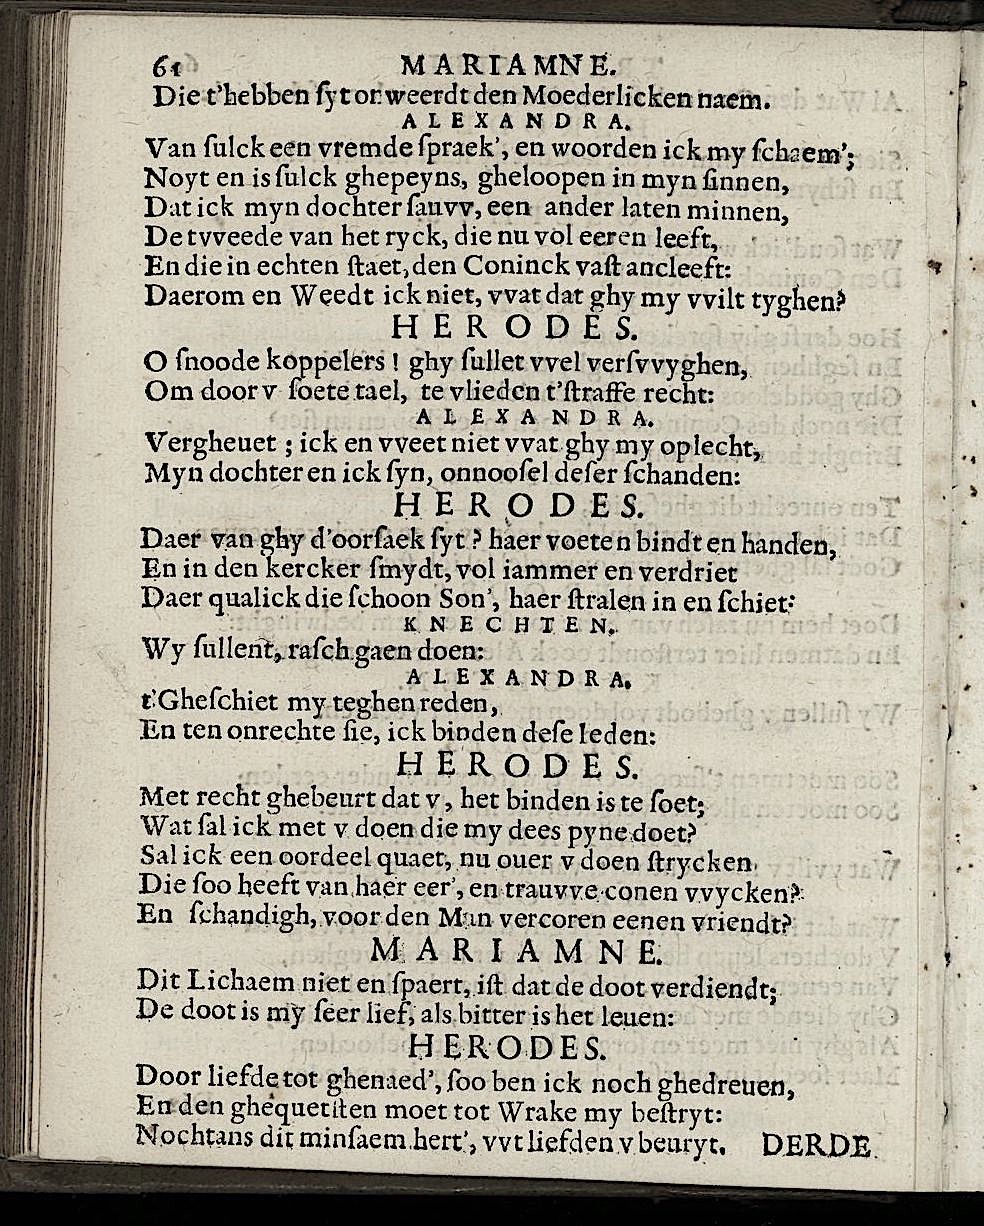 61 MARIAMNE.
Die t'hebben ſyt onweerdt den Moederlicken naem.
ALEXANDRA.
Van ſulck een vremde ſpraek', en woorden ick my ſchaem';
Noyt en is ſulck ghepeyns, gheloopen in myn ſinnen,
Dat ick myn dochter ſauvv, een ander laten minnen,
De tvveede van het ryck, die nu vol eeren leeft,
En die in echten ſtaet, den Coninck vaſt ancleeft:
Daerom en Weedt ick niet, vvat dat ghy my vvilt tyghen?
HERODES.
O ſnoode koppelers ! ghy ſullet vvel verſvvyghen,
Om door v ſoete tael, te vlieden t'ſtraffe recht:
ALEXANDRA.
Vergheuet ; ick en vveet niet vvat ghy my oplecht,
Myn dochter en ick ſyn, onnooſel deſer ſchanden:
HERODES.
Daer van ghy d'oorſaek ſyt ? haer voeten bindt en handen,
En in den kercker ſmydt, vol iammer en verdriet
Daer qualick die ſchoon Son', haer ſtralen in en ſchiet:
KNECHTEN.
Wy ſullent, raſch gaen doen:
ALEXANDRA.
t'Gheſchiet my teghen reden,
En ten onrechte ſie, ick binden deſe leden:
HERODES.
Met recht ghebeurt dat v, het binden is te ſoet;
Wat ſal ick met v doen die my dees pyne doet?
Sal ick een oordeel quaet, nu ouer v doen ſtrycken
Die ſoo heeft van haer eer', en trauvve conen vvycken?
En ſchandigh, voor den Man vercoren eenen vriendt?
MARIAMNE.
Dit Lichaem niet en ſpaert, iſt dat de doot verdiendt;
De doot is my ſeer lief, als bitter is het leuen:
HERODES.
Door liefde tot ghenaed', ſoo ben ick noch ghedreuen,
En den ghequetſten moet tot Wrake my beſtryt:
Nochtans dit minſaem hert', vvt liefden v beuryt. DERDE